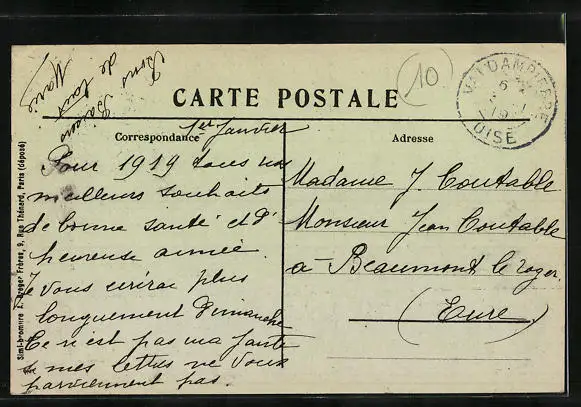 Bons
Baisers
de tous
Marie
10
CARTE POSTALE
VALDAMPIERRE
OISE
Correspondance
Adresse
1er Janvier
Pour 1919 tous nos
meilleurs souhaits
de bonne santé et d'
heureuse année.
Je vous écrirai plus
longuement Dimanche
Ce n'est pas ma faute
si mes lettres ne vous
parviennent pas.
Madame J. Coutable
Monsieur Jean Coutable
à Beaumont le Roger
(Eure.)
Simi-bromure A. Breger Frères, 9, Rue Thénard, Paris (déposé)